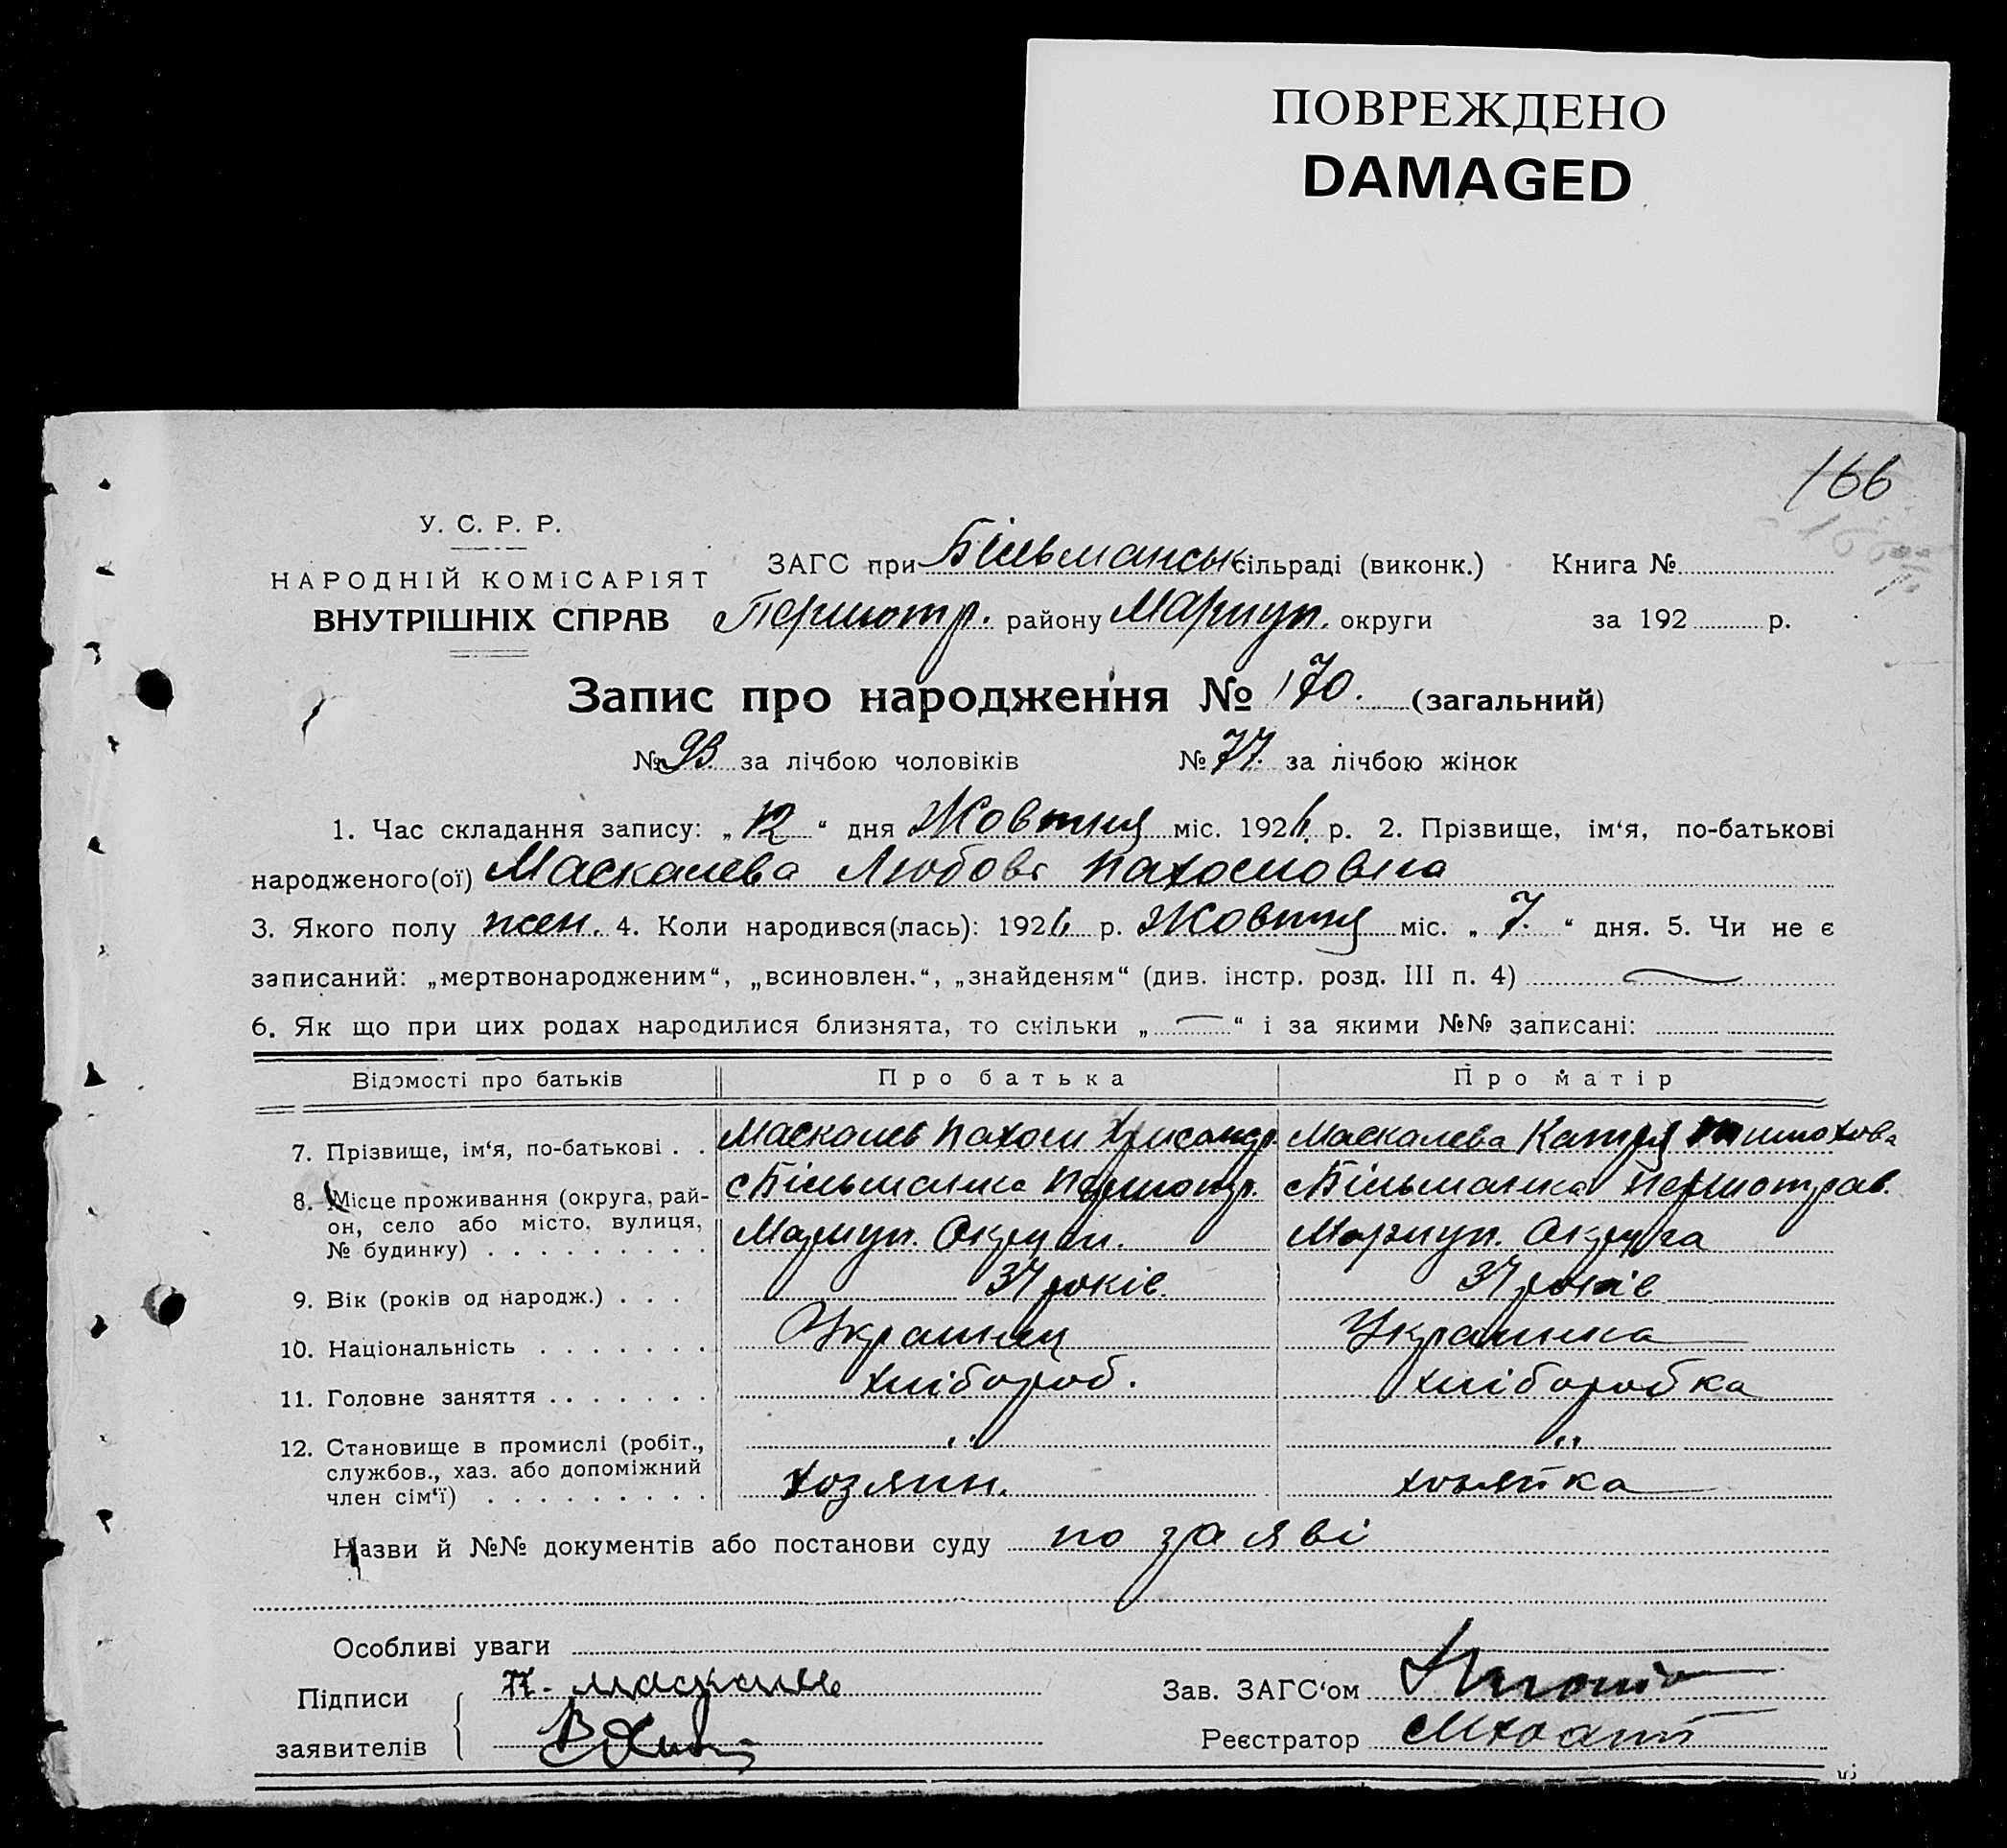 ПОВРЕЖДЕНО
DAMAGED
166
У. С. Р. Р.
НАРОДНІЙ КОМІСАРІЯТ
ВНУТРІШНІХ СПРАВ
ЗАГС при Більманськ сільраді (виконк.) Книга №
Першотр. району Маріуп. округи за 192 р.
Запис про народження № 170. (загальний)
№ 93 за лічбою чоловіків № 77. за лічбою жінок
1. Час складання запису: „12“ дня Жовтня міс. 1926 р. 2. Прізвище, ім‘я, по-батькові
народженого(ої) Маскалева Любовь Пахомовна
3. Якого полу жен. 4. Коли народився(лась): 1926 р. Жовтня міс. „7.“ дня. 5. Чи не є
записаний: „мертвонародженим“, „всиновлен.“, „знайденям“ (див. інстр. розд. III п. 4) —
6. Як що при цих родах народилися близнята, то скільки „—“ і за якими №№ записані:
Відомості про батьків Про батька Про матір
7. Прізвище, ім‘я, по-батькові . . Маскалев Пахом Хрисандр. Маскалева Катря Тимохова
8. Місце проживання (округа, рай- с Більманка Першотр. с Більманка Першотрав.
он, село або місто, вулиця,
№ будинку) . . . . . . . . . Маріуп. Округи. Маріуп. Округа
9. Вік (років од народж.) . . . 37 років 37 років
10. Національність . . . . . . . Украинец Украинка
11. Головне заняття . . . . . . . хлібороб. хліборобка
12. Становище в промислі (робіт., " "
службов., хаз. або допоміжний
член сім‘ї) . . . . . . . . . хозяин. хозяйка
Назви й №№ документів або постанови суду по заяві
Особливі уваги
Підписи П. Маскалев Зав. ЗАГС‘ом
заявителів Реєстратор